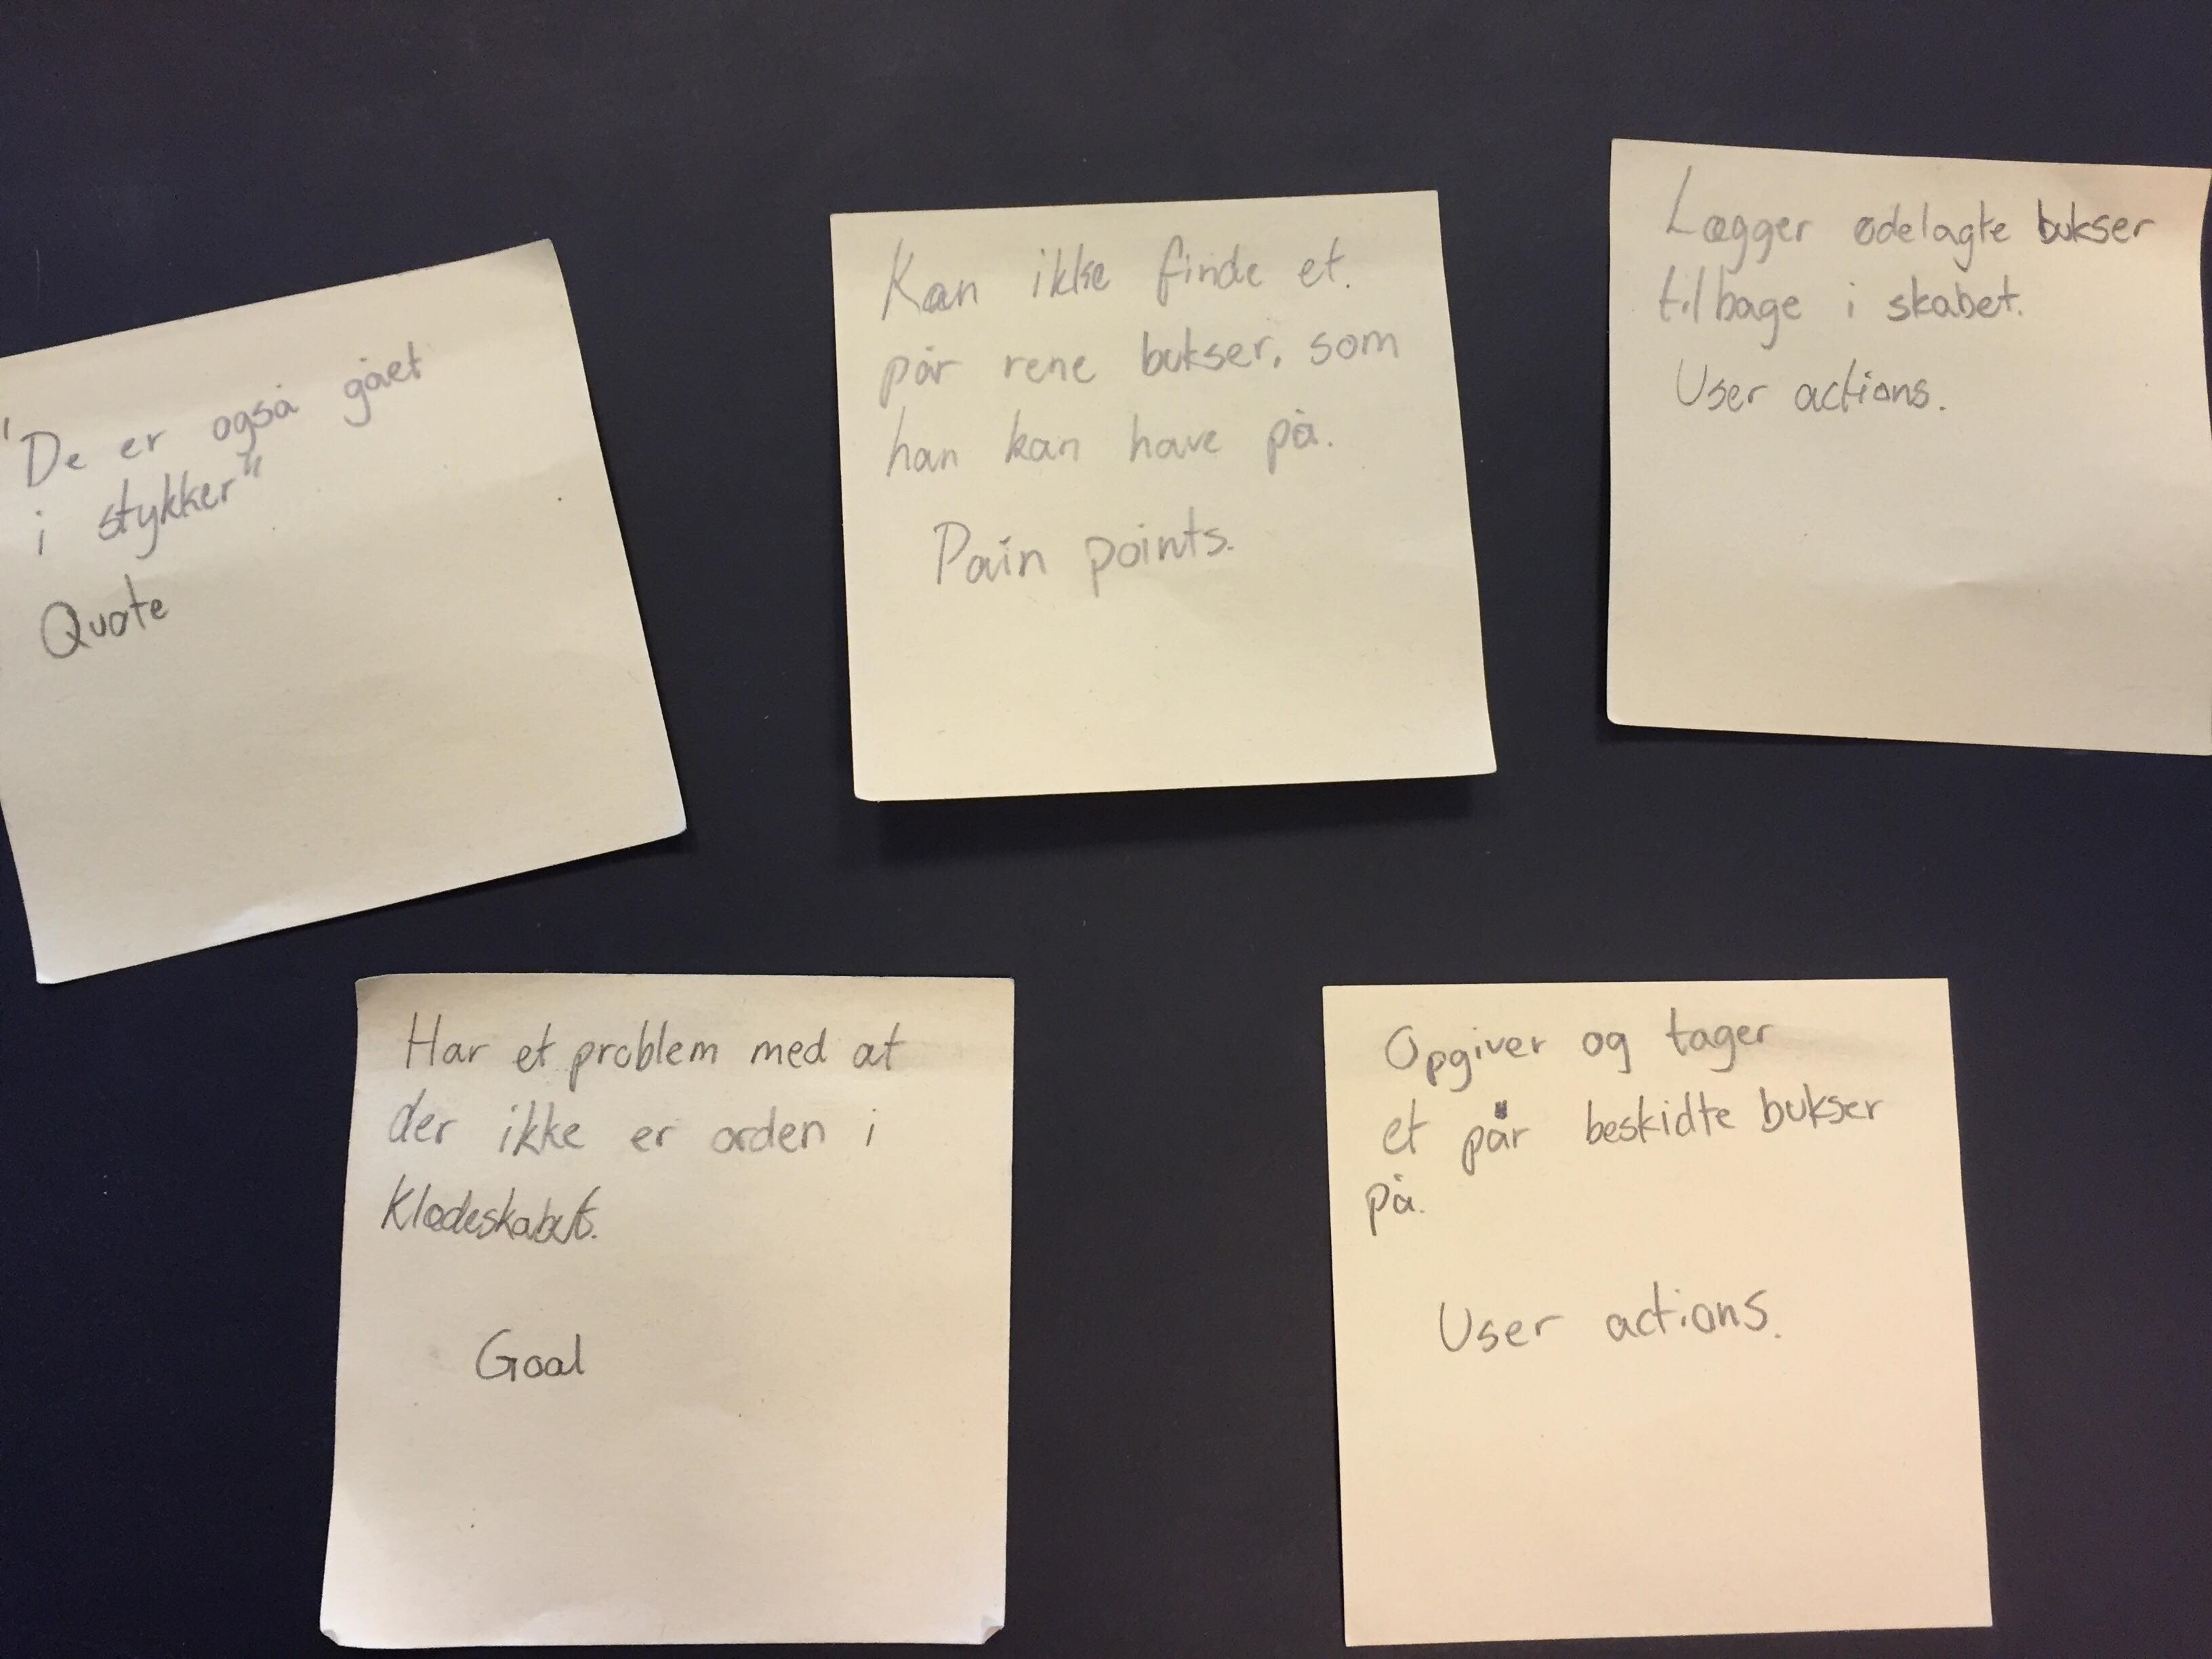 "De er også gået
i stykker"
Quote
Kan ikke finde et.
pår rene bukser, som
han kan have på.
Pain points.
Lægger ødelagte bukser
tilbage i skabet.
User actions.
Har et problem med at
der ikke er orden i
Klædeskabet.
Goal
Opgiver og tager
et pår beskidte bukser
på.
User actions.